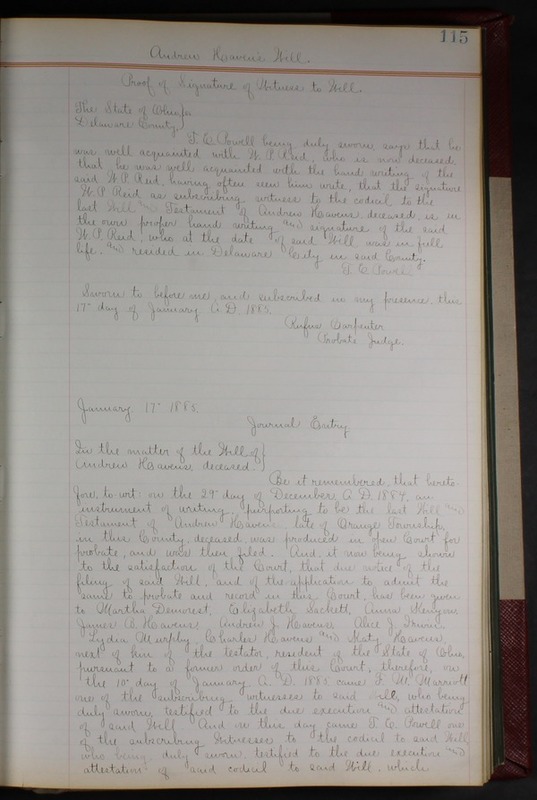 115
Andrew Havens Will.
Proof of Signature of Witness to Will.
The State of Ohio
Delaware County,
T. C. Powell being duly sworn says that he
was well acquainted with W. P. Reid, who is now deceased,
that he was well acquainted with the hand writing of the
said W. P. Reid, having often seen him write, that the signature
W. P. Reid as subscribing witness to the codicial to the
last Will and Testament of Andrew Havens deceased, is in
the own proper hand writing and signature of the said
W. P. Reid, who at the date of said Will was in full
life, and resided in Delaware City in said County.
T. C. Powell
Sworn to before me, and subscribed in my presence this
17th day of January A. D. 1885.
Rufus Carpenter
Probate Judge.
January 17th 1885.
Journal Entry
In the matter of the Will of
Andrew Havens, deceased.
Be it remembered, that hereto-
fore, to-wit: on the 29th day of December A. D. 1884, an
instrument of writing, purporting to be the last Will and
Testament of Andrew Havens late of Orange Township,
in this County, deceased, was produced in open Court for
probate, and was then filed. And, it now being shown
to the satisfaction of the Court, that due notice of the
filing of said Will, and of the application to admit the
same to probate and record in this Court, has been given
to Martha Demorest, Elizabeth Sackett, Anna
James B. Havens, Andrew J. Havens, Alice J.
Lydia Murphy, Charles Havens and Mary Havens,
next of kin of the testator, resident of the State of Ohio,
pursuant to a former order of this Court, therefore, on
the 10th day of January A. D. 1885 came F. M. Marriott
one of the subscribing witnesses to said Will, who being
duly sworn, testified to the due execution and attestation
of said Will. And on this day came T. C. Powell one
of the subscribing Witnesses to the codicial to said Will,
who being duly sworn, testified to the due execution and
attestation of said codicial to said Will, which